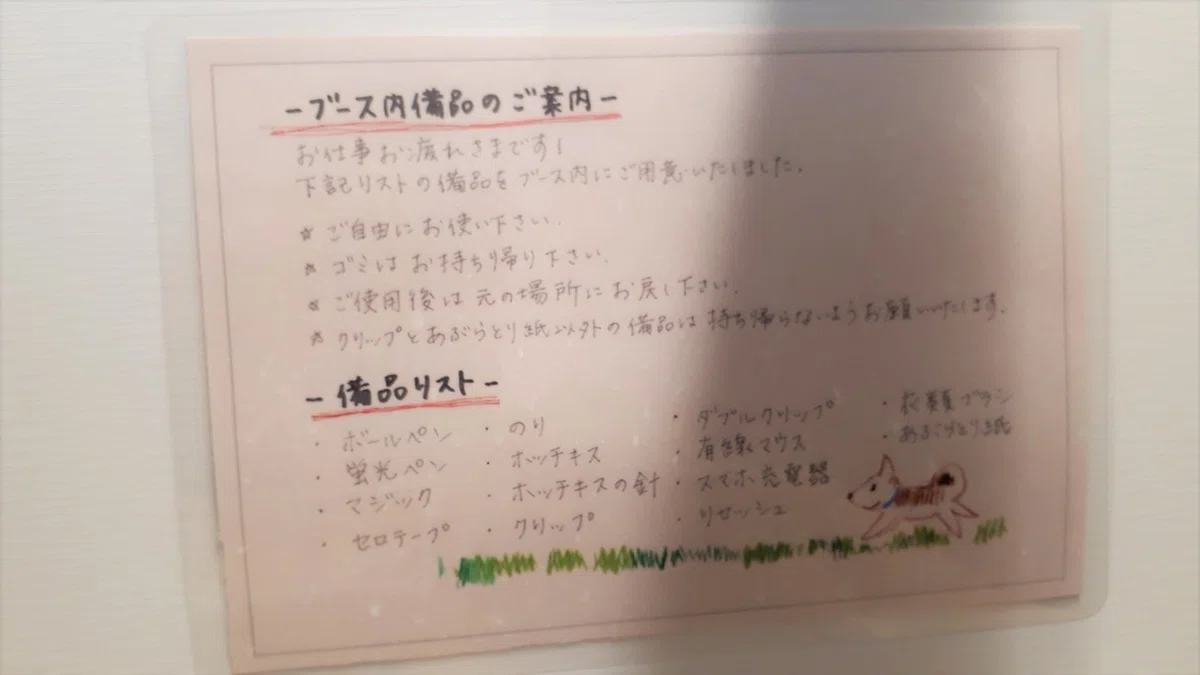 -ブース内備品のご案内-
お仕事お疲れさまです!
下記リストの備品をブース内にご用意いたしました.
☆ ご自由にお使い下さい.
☆ ゴミはお持ち帰り下さい.
☆ ご使用後は元の場所にお戻し下さい.
☆ クリップとあぶらとり紙以外の備品は持ち帰らないようお願いいたします.
-備品リスト-
・ボールペン
・蛍光ペン
・マジック
・セロテープ
・のり
・ホッチキス
・ホッチキスの針
・クリップ
・ダブルクリップ
・有線マウス
・スマホ充電器
・リセッシュ
・衣類ブラシ
・あぶらとり紙